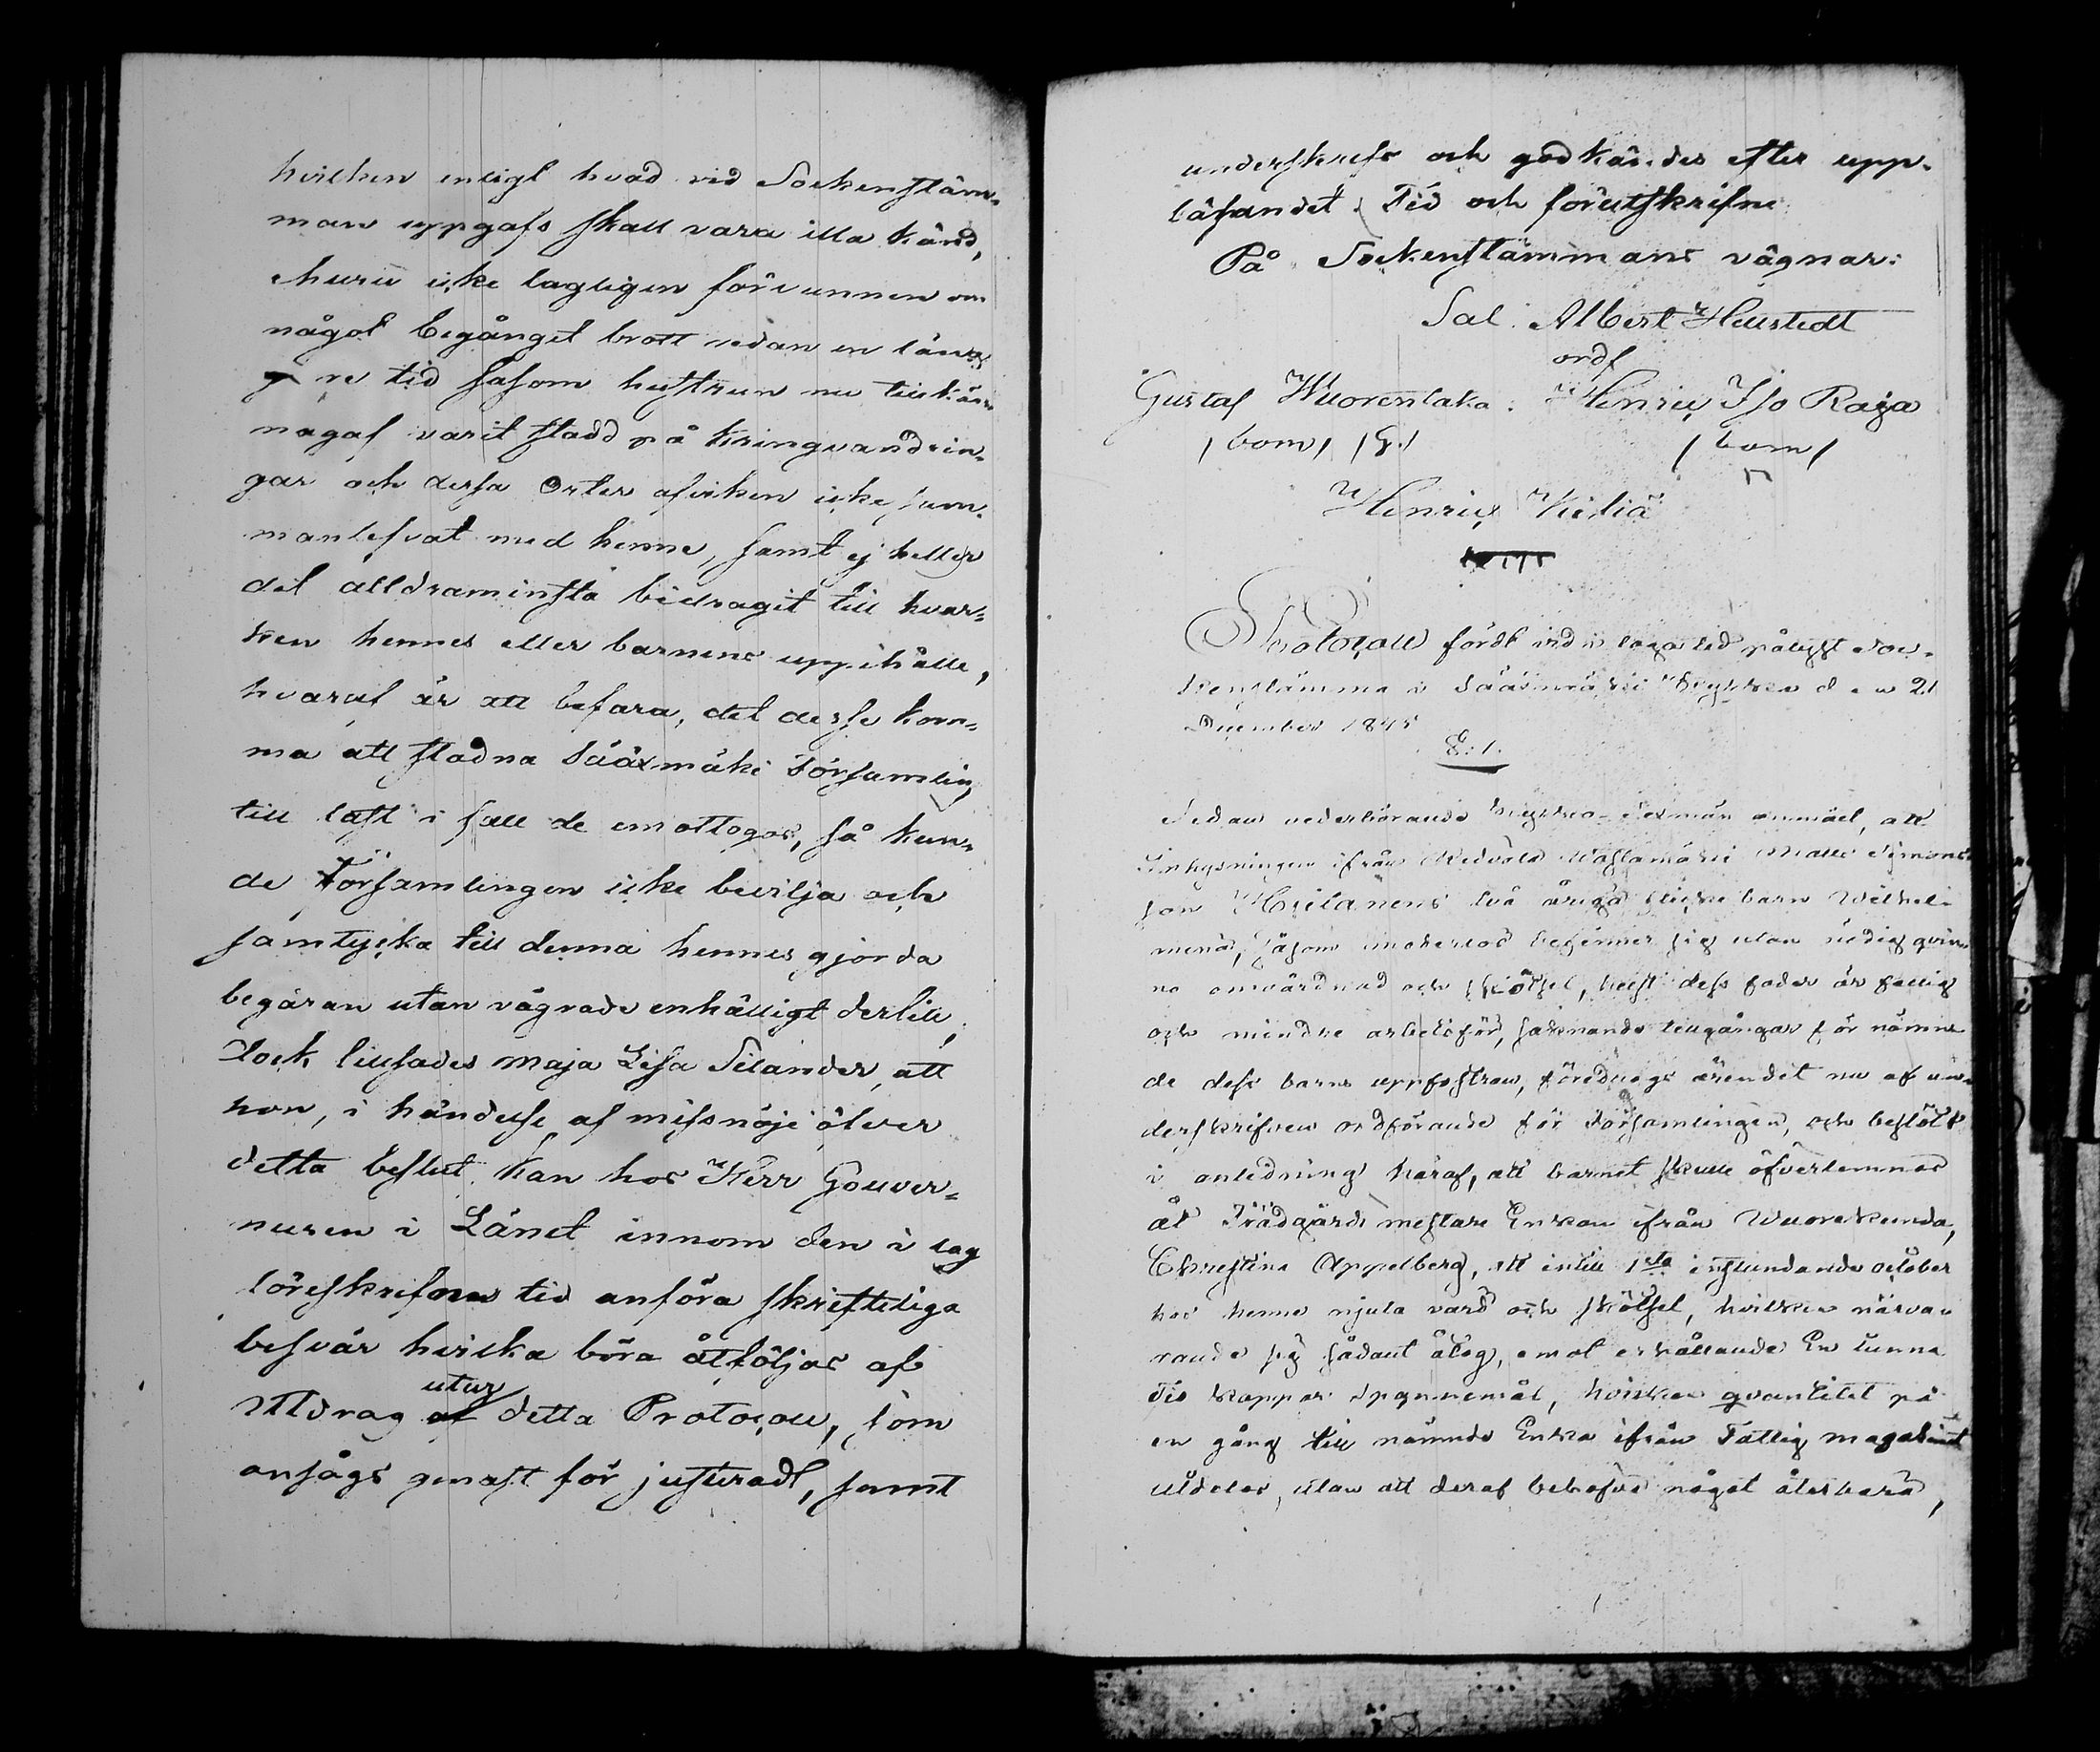 hvilken enligt hvad vid Sockenstäm-
man uppgafs skall vara illa känd,
ehuru icke lagligen förvunnen om
något begånget brott sedan en läng
re tid såsom hustrun nu tillkän
nagaf varit stadd på kringvandrin-
gar och dessa Orter afviken icke sam-
manlefvat med henne, samt ej heller
det alldraminsta bidragit till hvar-
ken hennes eller barnens uppehälle,
hvaraf är att befara, det desse kom-
ma att stadna Sääxmäki Församling
till last i fall de emottogos, så kun-
de Församlingen icke bevilja och
samtycka till denna hennes gjorda
begäran utan vägrade enhälligt dertill,
dock lillsades Maja Lisa Silander, att
hon, i händelse af missnöje öfver
detta beslut, kan hos Herr Gouver-
neuren i Länet innom den i lag
föreskrifna tid anföra skriftliga
besvär hvilka böra åtföljas af
Utdrag utur detta Protocoll, som
ansågs genast för justeradt, samt
underskrefs och godkändes efter upp-
läsandet. Tid och förutskrifne
På Sockenstämmans vägnar:
Sal. Albert Hellstedt
ordf
Gustaf Wuorentaka. Henric Iso Raja
/bom/ /g./ /bom/
Henric Kieliä
Protocoll fördt vid i laga tid pålyst Soc-
kenstämma i Sääxmäki Kyrka den 21
December 1845
§. 1.
Sedan vederbörande Kyrko-Sexmän anmält, att
Inhysningen ifrån Matts Simons
son två åriga flicke barn Wilhel-
mina, såsom moderlös befinner sig utan nödig qvin
no omvårdnad och skötsel, helst dess fader är fattig
och mindre arbetsför, saknande tillgångar för nämn
de dess barns uppfostran, föredrogs ärendet nu af un-
derskrifven ordförande för Församlingen, och beslöts
i anledning häraf, att barnet skulle öfverlemnas
åt Trädgårds mestare Enkan ifrån Wuorekunda,
Christina Appelberg, att intill 1sta instundande october
hos henne njuta vård och skötsel, hvilken närva
rande sig sådant åtog, emot erhållande En tunna
tio kappar spannemål, hvilken qvantitet på
en gång till nämnde Enka ifrån Fattig magasinet
utdelas, utan att deraf behöfva något återbära,